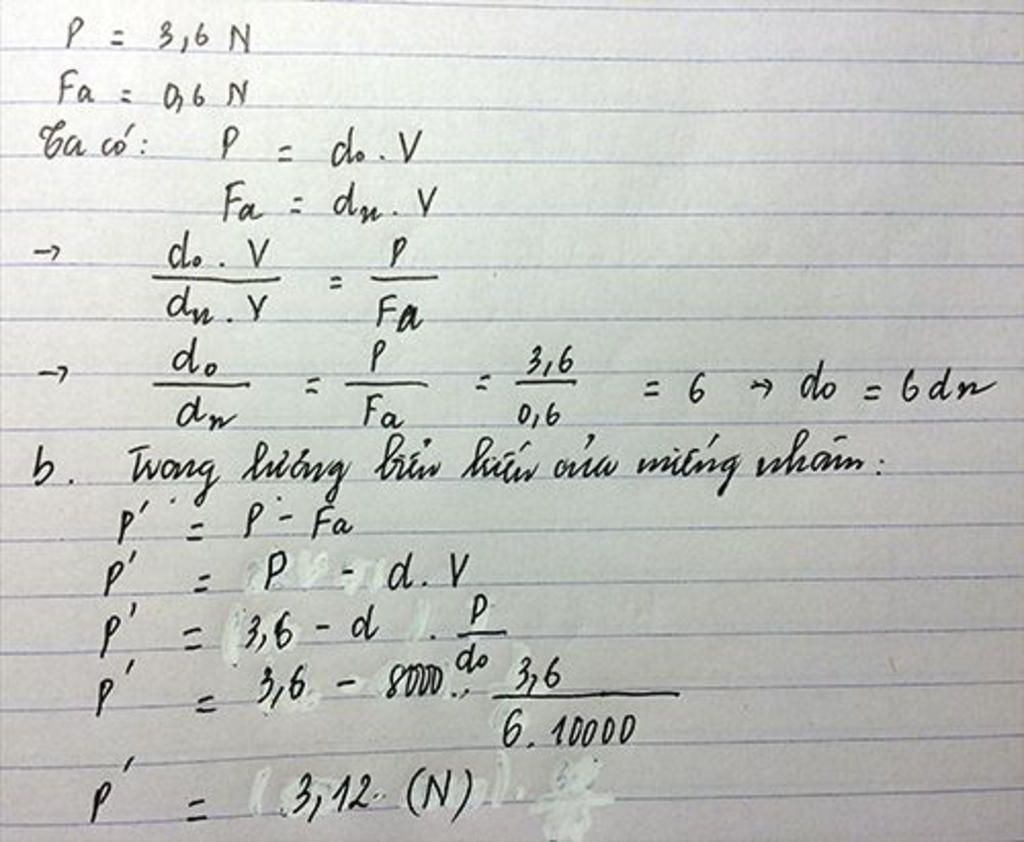 P = 3,6 N
Fa = 0,6 N
Ta có: P = do . V
Fa = dn . V
→ do . V / dn . V = P / Fa
→ do / dn = P / Fa = 3,6 / 0,6 = 6 → do = 6 dn
b. Trong lượng biểu kiến của miếng nhôm:
P' = P - Fa
P' = P - d . V
P' = 3,6 - d . P / do
P' = 3,6 - 8000 . 3,6 / 6 . 10000
P' = 3,12 (N)